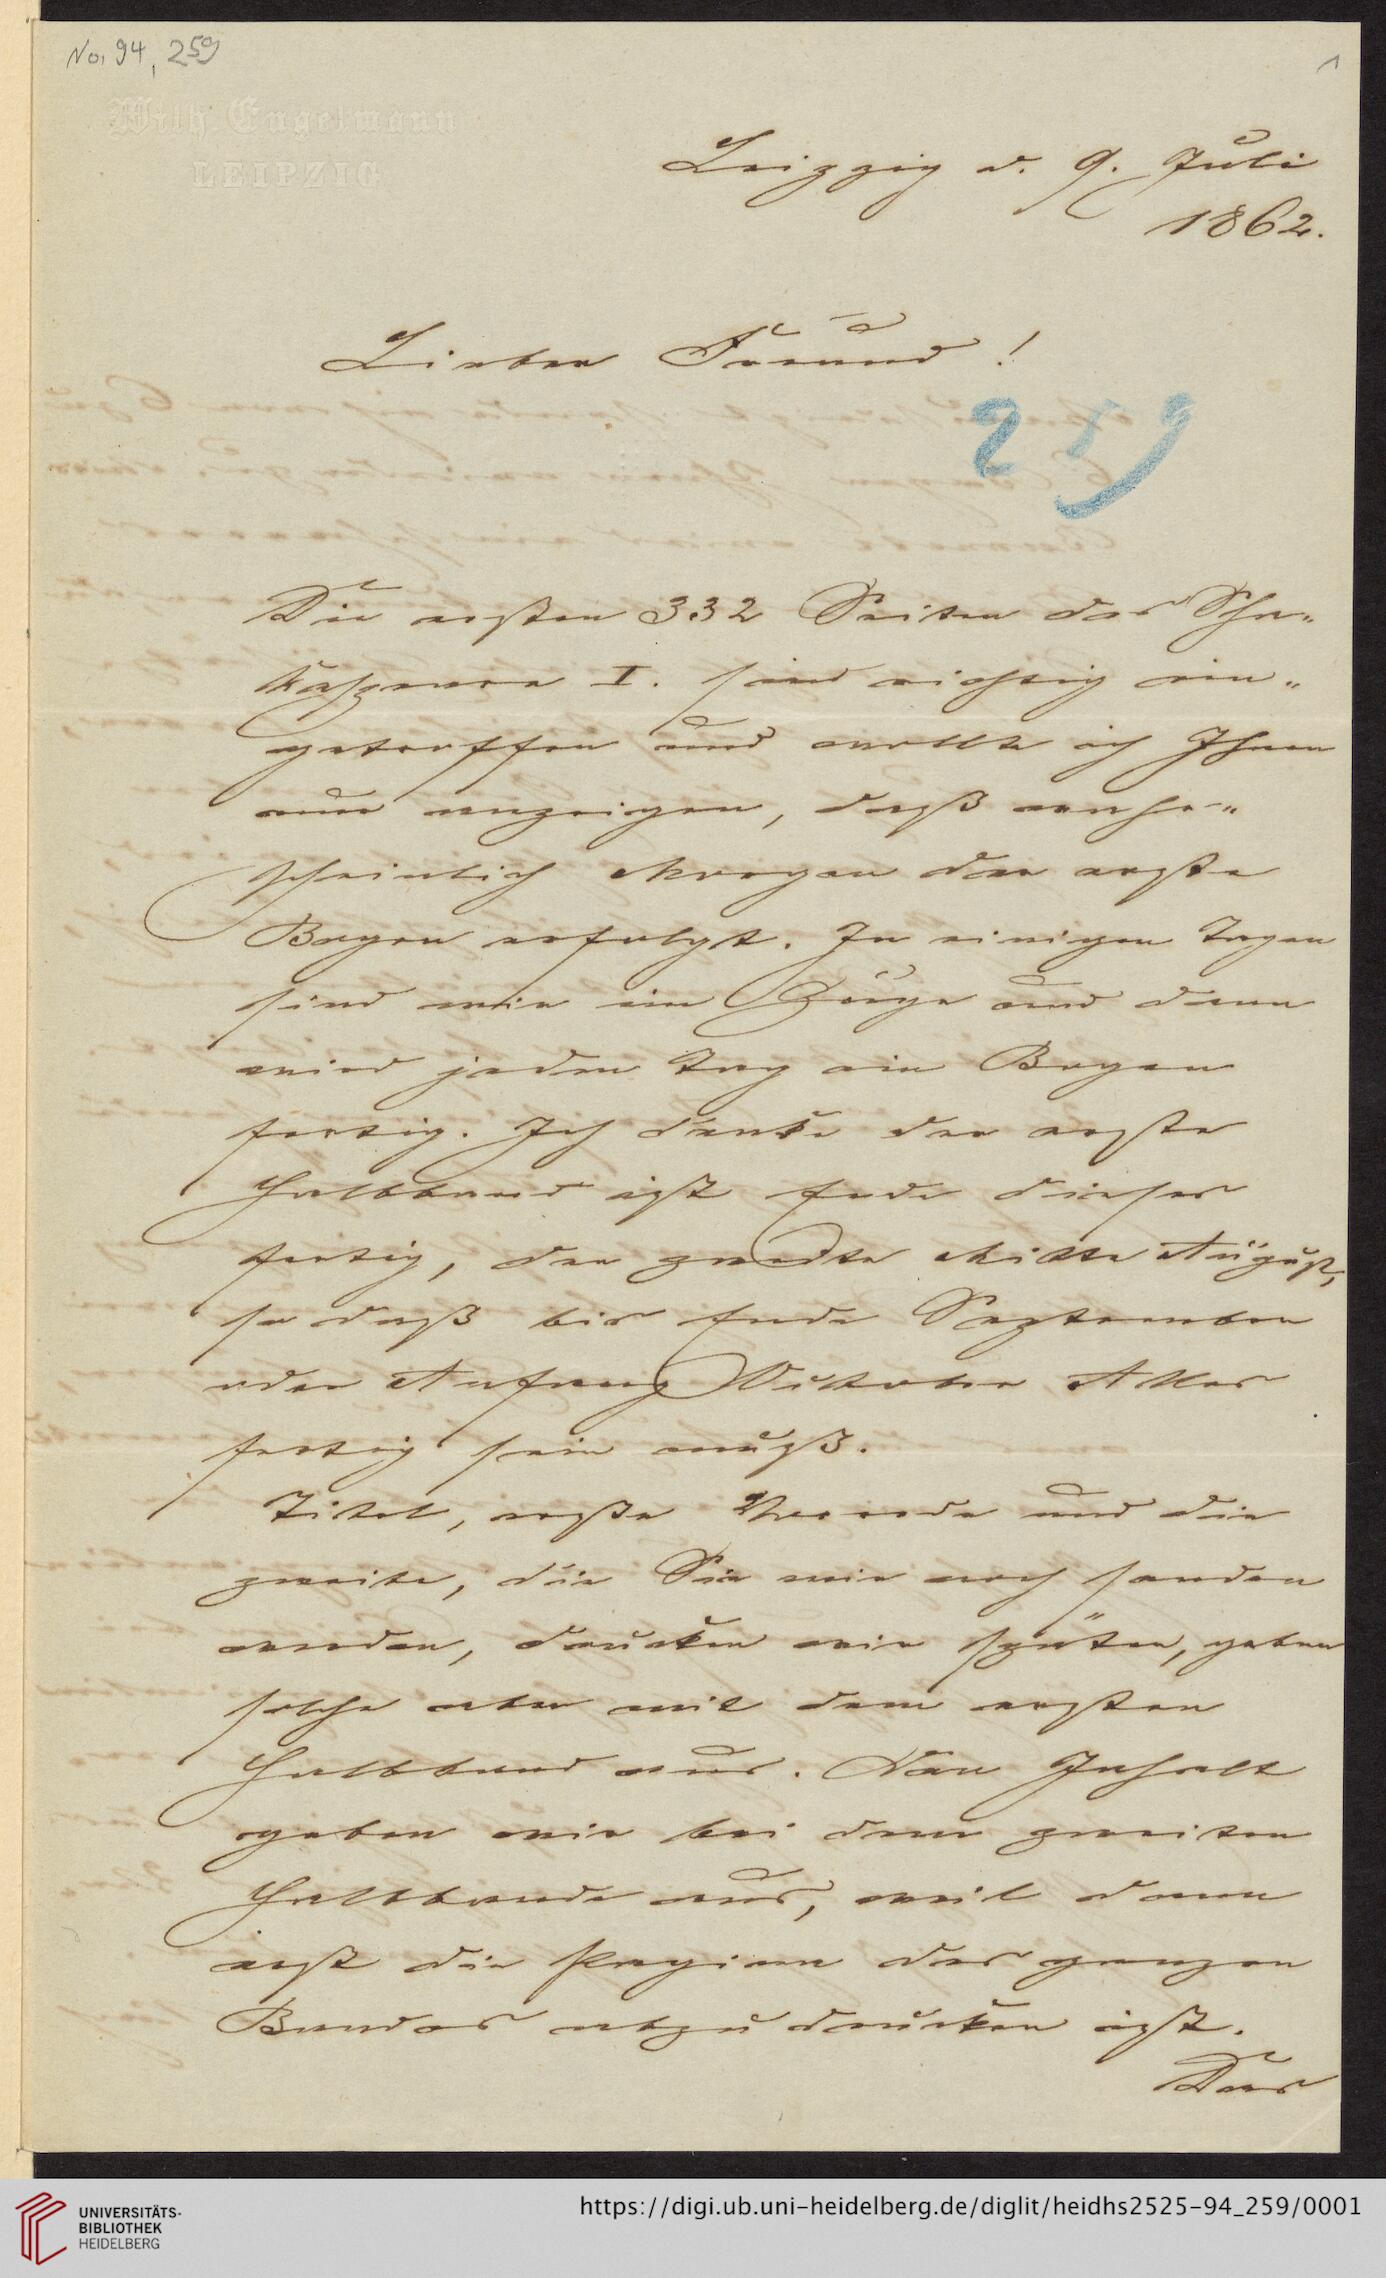 No. 94, 259
1
Wilh. Engelmann
LEIPZIG
Leipzig d. 9. Juli
1862.
Lieber Freund!
259
Die ersten 332 Seiten des Sha-
kespeare I. sind richtig ein-
getroffen und wollte ich Ihnen
nur anzeigen, daß wahr-
scheinlich Morgen der erste
Bogen erfolgt. In einigen Tagen
sind wir im Zuge und dann
wird jeden Tag ein Bogen
fertig. Ich denke der erste
Halbband ist Ende dieses
fertig, der zweite Mitte August,
so daß bis Ende September
oder Anfang Oktober Alles
fertig sein muß.
Titel, erste Vorrede und die
zweite, die Sie mir noch senden
werden, drucken wir später, geben
solche aber mit dem ersten
Halbband aus. Den Inhalt
geben wir bei dem zweiten
Halbbande aus, weil dann
erst die Pagina des ganzen
Bandes abzudrucken ist.
Das
UNIVERSITÄTS-
BIBLIOTHEK
HEIDELBERG
https://digi.ub.uni-heidelberg.de/diglit/heidhs2525-94_259/0001